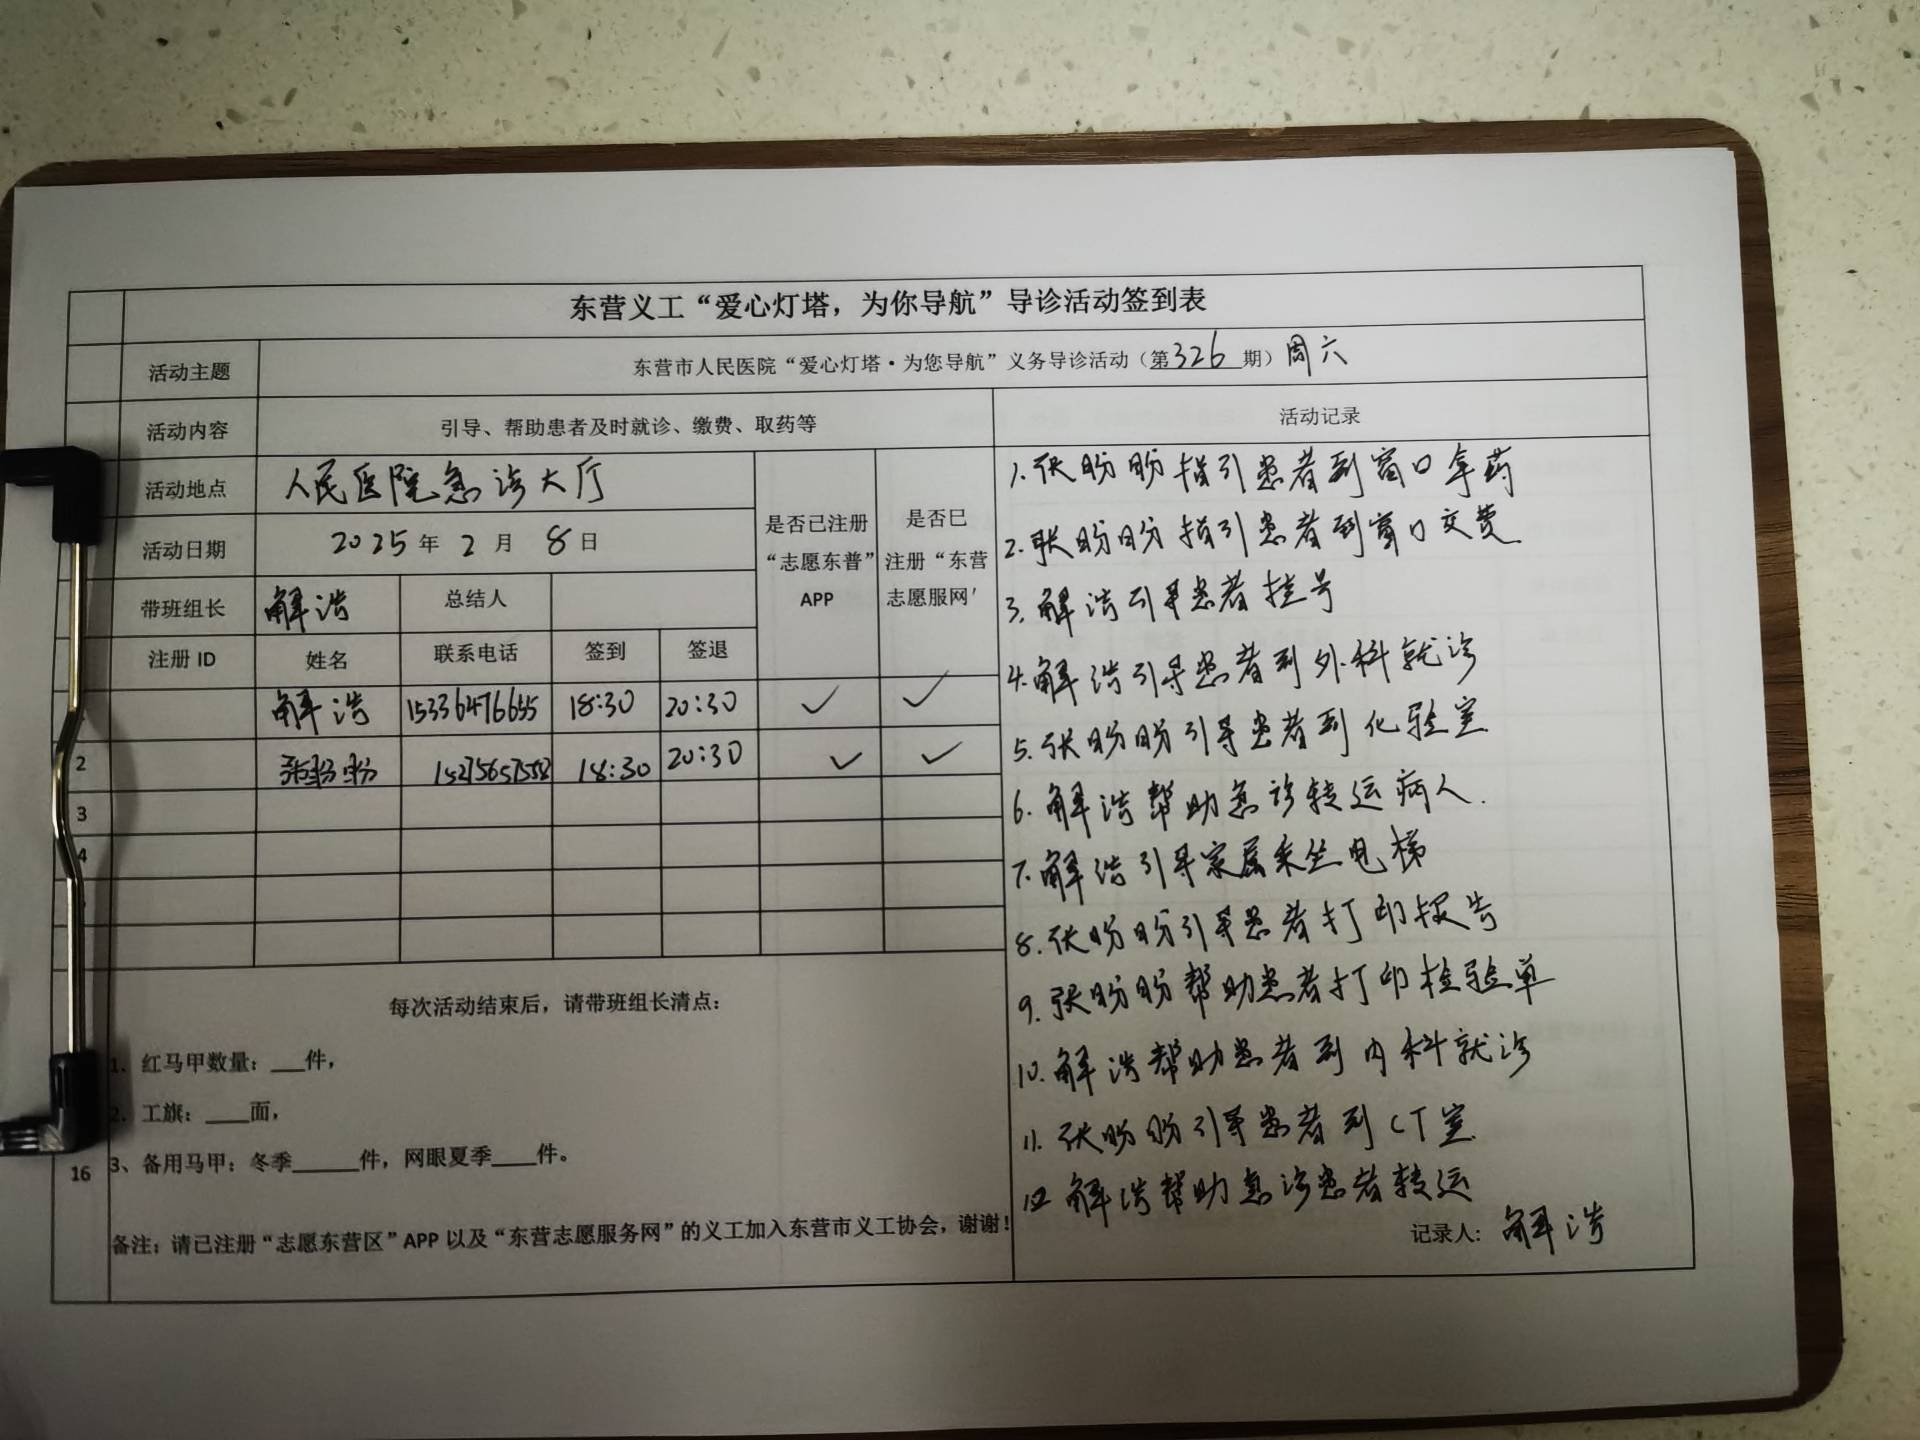 东营义工“爱心灯塔，为你导航”导诊活动签到表
活动主题 东营市人民医院“爱心灯塔·为您导航”义务导诊活动（第326期）周六
活动内容 引导、帮助患者及时就诊、缴费、取药等
活动地点 人民医院急诊大厅
活动日期 2025年2月8日
带班组长 解浩 总结人
是否已注册
“志愿东普”
APP
是否已
注册“东营
志愿服网'
注册 ID 姓名 联系电话 签到 签退
解浩 15336476655 18:30 20:30 ✓ ✓
2 张盼盼 15275657558 18:30 20:30 ✓ ✓
3
4
每次活动结束后，请带班组长清点：
1、红马甲数量：___件，
2、工旗：____面，
16 3、备用马甲：冬季______件，网眼夏季____件。
备注：请已注册“志愿东营区”APP 以及“东营志愿服务网”的义工加入东营市义工协会，谢谢！
活动记录
1.张盼盼指引患者到窗口拿药
2.张盼盼指引患者到窗口交费
3.解浩引导患者挂号
4.解浩引导患者到外科就诊
5.张盼盼引导患者到化验室
6.解浩帮助急诊转运病人.
7.解浩引导家属乘坐电梯
8.张盼盼引导患者打印报告
9.张盼盼帮助患者打印检验单
10.解浩帮助患者到内科就诊
11.张盼盼引导患者到CT室
12 解浩帮助急诊患者转运
记录人：解浩